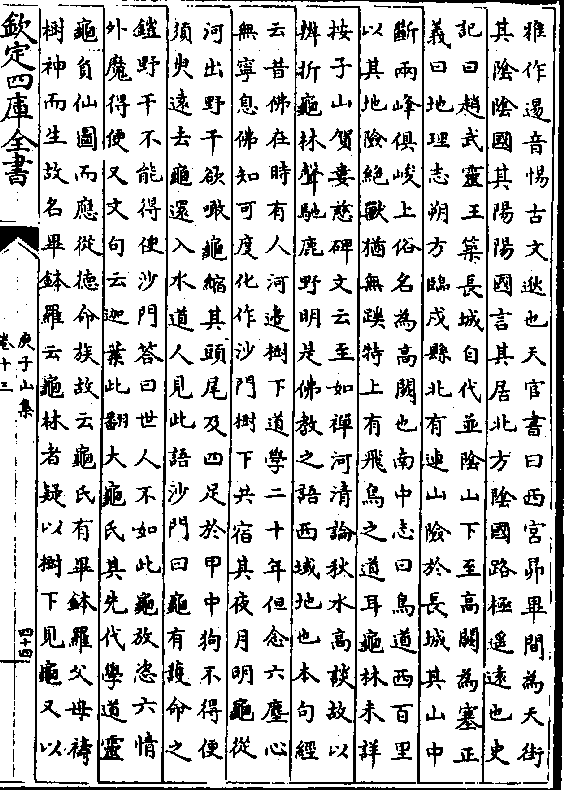 雅作遏音惕古文逖也天官書曰西宮昴畢間為天街
其陰陰國其陽陽國言其居北方陰國路極遥遠也史
記曰趙武靈王築長城自代並陰山下至高闕為塞正
義曰地理志朔方臨戎縣北有連山險於長城其山中
斷兩峰俱峻上俗名為高闕也南中志曰鳥道西百里
以其地險絶獸猶無蹊特上有飛鳥之道耳龜林未詳
按子山賀婁慈碑文云至如禪河清論秋水高談故以
辨折龜林聲馳鹿野明是佛教之語西域地也本句經
云昔佛在時有人河邉樹下道學二十年但念六塵心
無寧息佛知可度化作沙門樹下共宿其夜月明龜從
河出野干欲噉龜縮其頭尾及四足於甲中狗不得便
須臾遠去龜還入水道人見此語沙門曰龜有護命之
鎧野干不能得便沙門答曰世人不如此龜放恣六情
外魔得便又文句云迦葉此翻大龜氏其先代學道靈
龜負仙圖而應從徳命族故云龜氏有畢鉢羅父母禱
樹神而生故名畢鉢羅云龜林者疑以樹下見龜又以
欽定四庫全書
庾子山集
卷十三
四十四